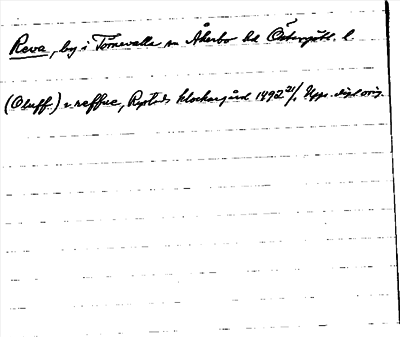 Reva, by i Törnevalla sn Åkerbo hd Östergötl. l.
(Oluff) i reffue, Rystads klockargård 1492 21/1 Upps. dipl orig.